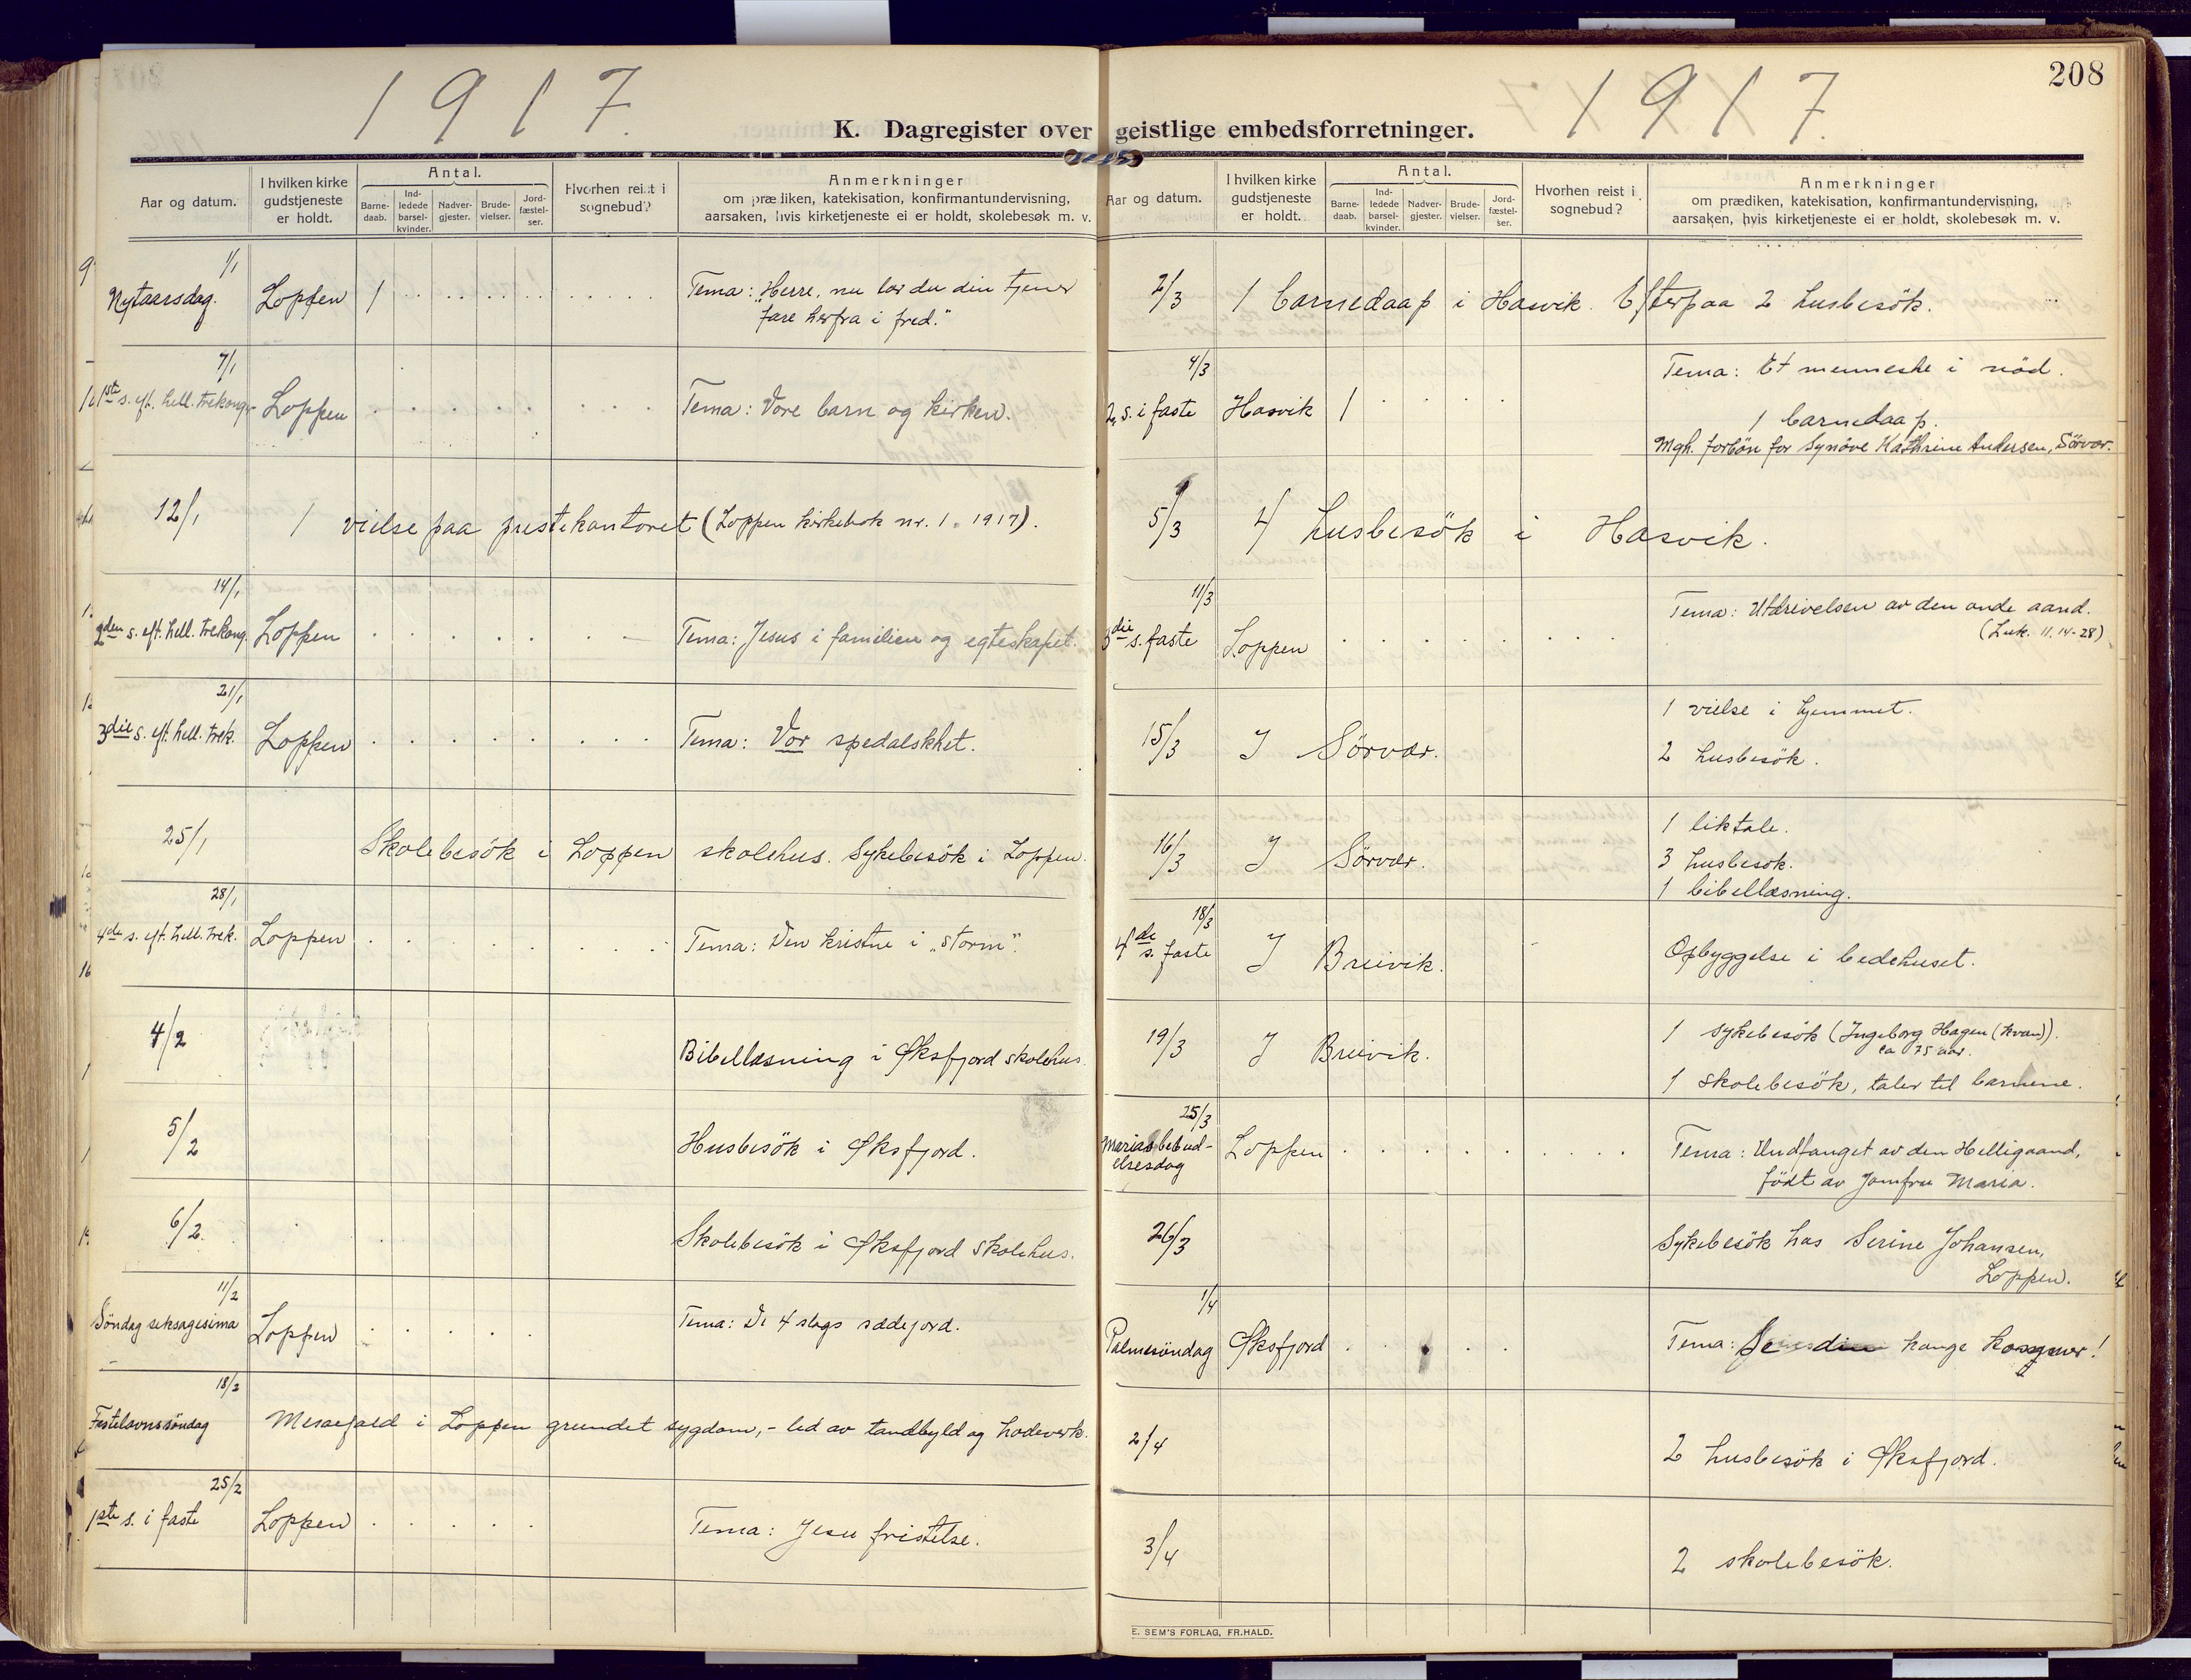 1917.
K. Dagregister over
Aar og datum.
I hvilken kirke gudstjeneste er holdt.
Antal.
Barne-daab.
Ind-ledede barsel-kvinder.
Nadver-gjester.
Brude-vielser.
Jord-fæstel-ser.
Hvorhen reist i sognebud?
Anmerkninger
om prædiken, katekisation, konfirmantundervisning,
aarsaken, hvis kirketjeneste ei er holdt, skolebesøk m. v.
1/1
Nytaarsdag. Loppen 1 Tema: "Herre, nu lar du din tjener
fare herfra i fred."
7/1
1ste s. eft. hell. trekonger Loppen Tema: Vore barn og kirken.
12/1 1 vielse paa prestekontoret (Loppen kirkebok nr. 1. 1917).
14/1
2den s. eft. hell. trekong. Loppen Tema: Jesus i familien og egteskapet.
21/1
3die s. eft. hell. trek. Loppen Tema: Vor spedalskhet.
25/1 Skolebesök i Loppen skolehus. Sykebesök i Loppen.
28/1
4de s. eft. hell. trek. Loppen Tema: Den kristne i „storm".
4/2 Bibellæsning i Øksfjord skolehus.
5/2 Husbesök i Øksfjord.
6/2. Skolebesök i Øksfjord skolehus.
11/2
Söndag seksagesima Loppen Tema: De 4 slags sædejord.
18/2
Fastelavnssöndag Messefald i Loppen grundet sygdom, - led av tandbyld og hodeverk.
25/2
1ste s. i faste Loppen Tema: Jesu fristelse.
1917.
208
geistlige embedsforretninger.
Aar og datum.
I hvilken kirke gudstjeneste er holdt.
Antal.
Barne-daab.
Ind-ledede barsel-kvinder.
Nadver-gjester.
Brude-vielser.
Jord-fæstel-ser.
Hvorhen reist i sognebud?
Anmerkninger
om prædiken, katekisation, konfirmantundervisning,
aarsaken, hvis kirketjeneste ei er holdt, skolebesøk m. v.
2/3 1 barnedaap i Hasvik. Efterpaa 2 husbesök.
4/3 Tema: Et menneske i nöd.
2. s. i faste Hasvik 1
1 barnedaap.
Mgh. forbön for Synöve Kathrine Andersen, Sörvær.
5/3 4 husbesök i Hasvik.
11/3 Tema: Utdrivelsen av den onde aand.
3die s. faste Loppen (Luk. 11, 14-28)
1 vielse i hjemmet.
15/3 I Sörvær.
2 husbesök.
1 liktale.
16/3 I Sörvær. 3 husbesök.
1 bibellæsning.
18/3
4de s. faste I Breivik. Opbyggelse i bedehuset.
19/3 I Breivik. 1 sykebesök (Ingeborg Hagen (kvæn)).
ca 75 aar.
1 skolebesök, taler til barnene.
25/3
Mariæ bebud- Loppen Tema: Undfanget av den Helligaand,
elsesdag födt av Jomfru Maria.
26/3 Sykebesök hos Serine Johansen,
Loppen.
1/4
Palmesöndag Øksfjord Tema: Se din konge kommer!
2/4 2 husbesök i Øksfjord.
3/4 2 skolebesök.
E. SEM'S FORLAG, FR.HALD.